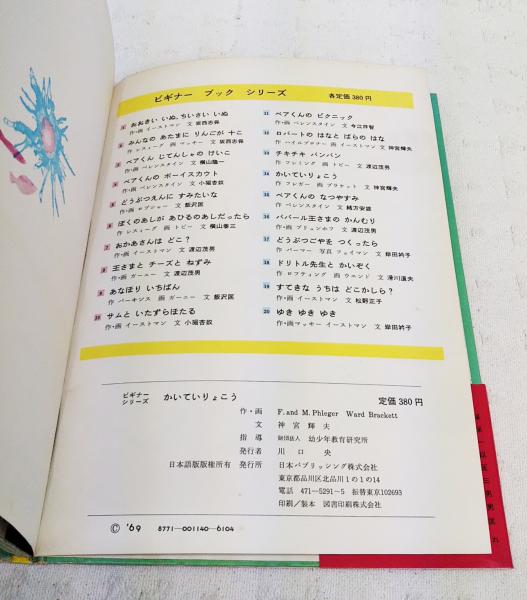 ビギナー ブック シリーズ 各定価 380 円
1 おおきい いぬ, ちいさい いぬ
作・画 イーストマン 文 坂西志保
2 みんなの あたまに りんごが 十こ
作 レスィーグ 画 マッキー 文 坂西志保
3 ベアくん じてんしゃの けいこ
作・画 ベレンスタイン 文 横山隆一
4 ベアくんの ボーイスカウト
作・画 ベレンスタイン 文 小堀杏奴
5 どうぶつえんに すみたいな
作・画 ロプシャー 文 飯沢匡
6 ぼくのあしが あひるのあしだったら
作 レスィーグ 画 トビー 文 横山泰三
7 おかあさんは どこ?
作・画 イーストマン 文 渡辺茂男
8 王さまと チーズと ねずみ
作・画 ガーニー 文 渡辺茂男
9 あなほり いちばん
作 パーキンス 画 ガーニー 文 飯沢匡
10 サムと いたずらほたる
作・画 イーストマン 文 小堀杏奴
11 ベアくんの ピクニック
作・画 ベレンスタイン 文 今江祥智
12 ロバートの はなと ばらの はな
作 ハイルブロナー 画 イーストマン 文 神宮輝夫
13 チキチキ バンバン
作 フレミング 画 トビー 文 渡辺茂男
14 かいていりょこう
作 フレガー 画 ブラケット 文 神宮輝夫
15 ベアくんの なつやすみ
作・画 ベレンスタイン 文 緒方安雄
16 ババール王さまの かんむり
作・画 ブリュンホフ 文 渡辺茂男
17 どうぶつごやを つくったら
作 パーマー 写真 フェイマン 文 岸田衿子
18 ドリトル先生と かいぞく
作 ロフティング 画 ウエンド 文 滑川道夫
19 すてきな うちは どこかしら?
作・画 イーストマン 文 松野正子
20 ゆき ゆき ゆき
作・画 マッキー イーストマン 文 岸田衿子
ビギナー シリーズ かいていりょこう 定価 380 円
作・画 F. and M. Phleger Ward Brackett
文 神 宮 輝 夫
指 導 財団法人 幼少年教育研究所
発行者 川 口 央
日本語版版権所有 発行所 日本パブリッシング株式会社
東京都品川区北品川1の1の14
電話 471—5291〜5 振替東京102693
印刷/製本 図書印刷株式会社
© '69 8771—001140—6104